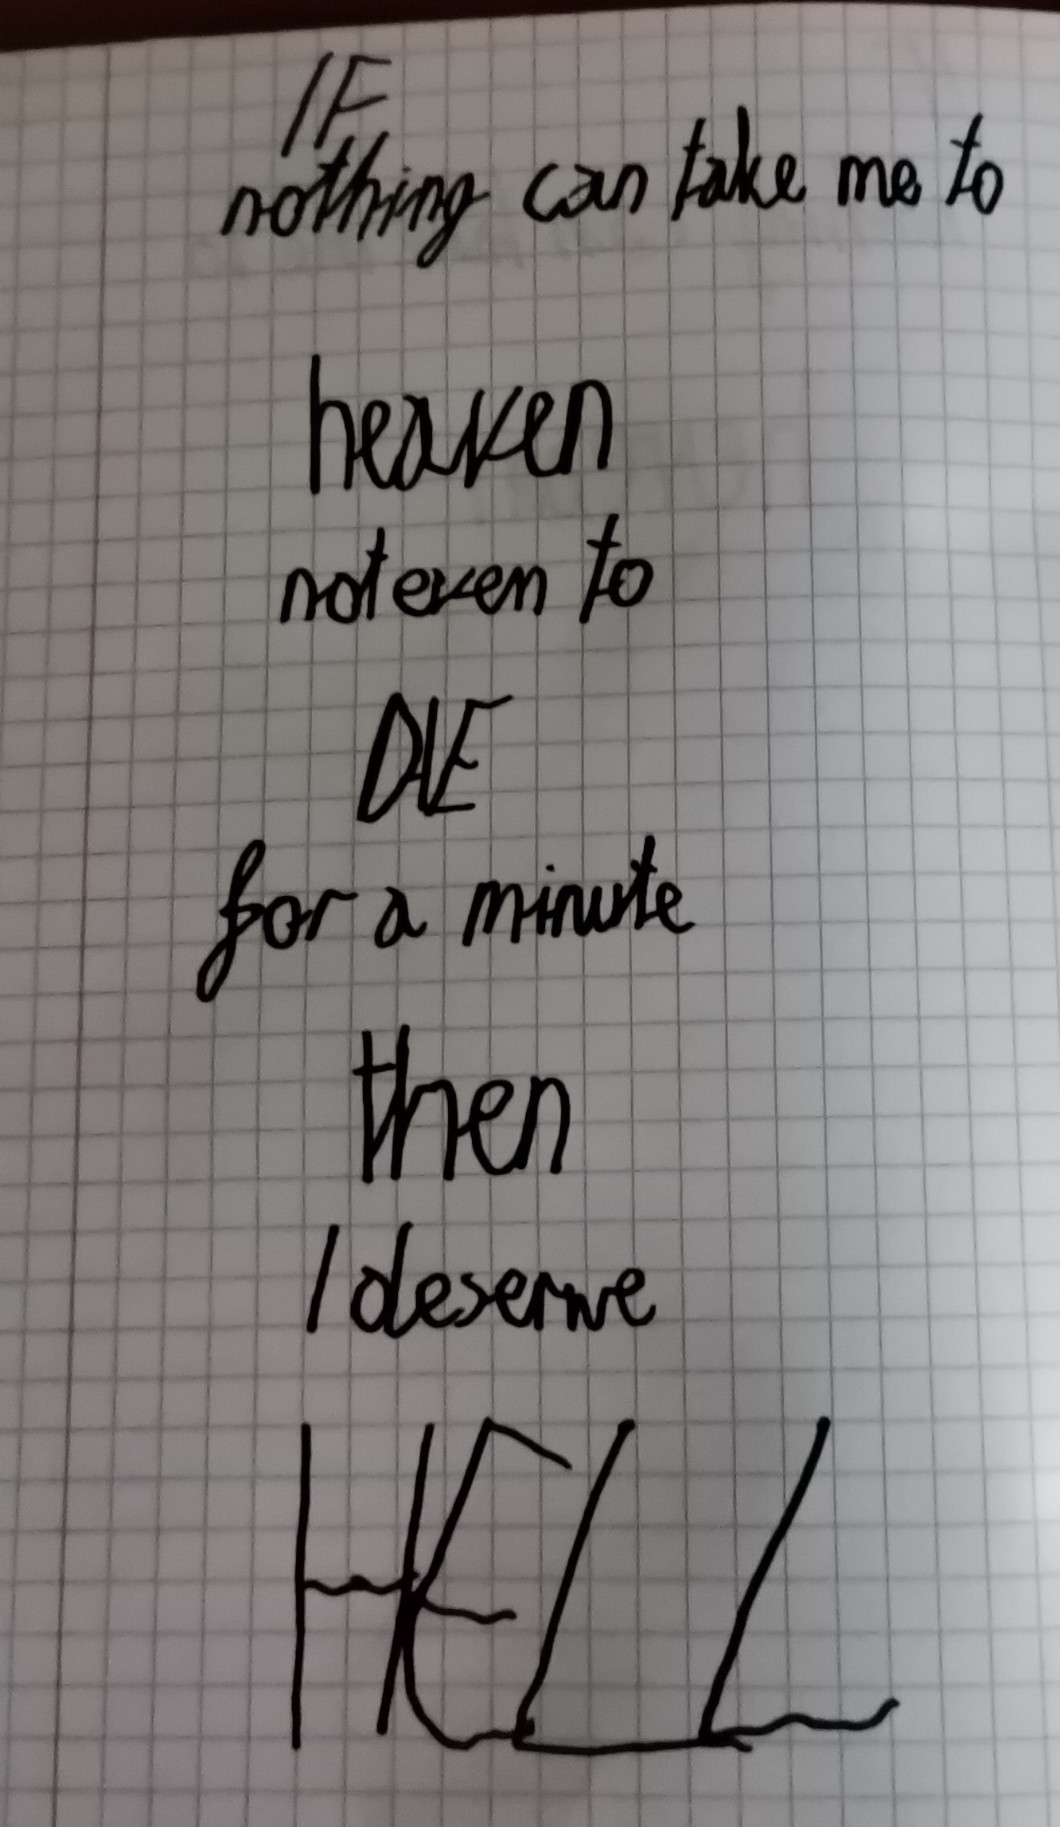 IF
nothing can take me to
heaven
not even to
DIE
for a minute
then
I deserve
HELL